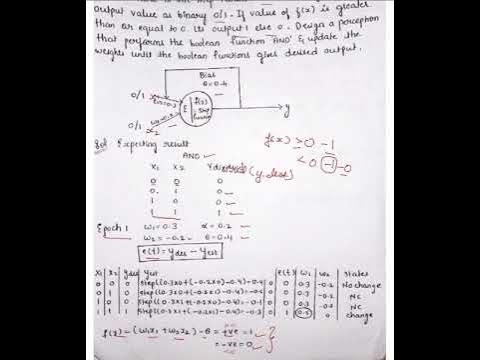 output value as binary 0/1. If value of f(x) is greater
than or equal to 0. Its output 1 else 0. Design a perceptron
that performs the boolean function 'AND' & update the
weights until the boolean functions gives desired output.
Bias
θ=0.4
0/1
f(x)
Step
function
y
0/1
x2
f(x) ≥ 0 - 1
< 0 -1 - 0
Sol Expecting result
AND
x1 x2 Ydesired (y.des)
0 0 0
0 1 0
1 0 0
1 1 1
Epoch 1 w1=0.3 α=0.2
w2=-0.2 θ=0.4
e(t) = Ydes - Yest
x1 x2 Ydes Yest e(t) w1 w2 States
0 0 0 Step((0.3×0+(-0.2×0)-0.4)=-0.4) 0 0 0.3 -0.2 No change
0 1 0 Step((0.3×0+(-0.2×1)-0.4)=-0.6) 0 0 0.3 -0.2 NC
1 0 0 Step((0.3×1+(-0.2×0)-0.4)=-0.1) 0 0 0.3 -0.2 NC
1 1 1 Step((0.3×1+(-0.2×1)-0.4)=-0.3) 0 1 0.5 0 change
f(x) = (w1x1 + w2x2) - θ = +ve = 1
= -ve = 0